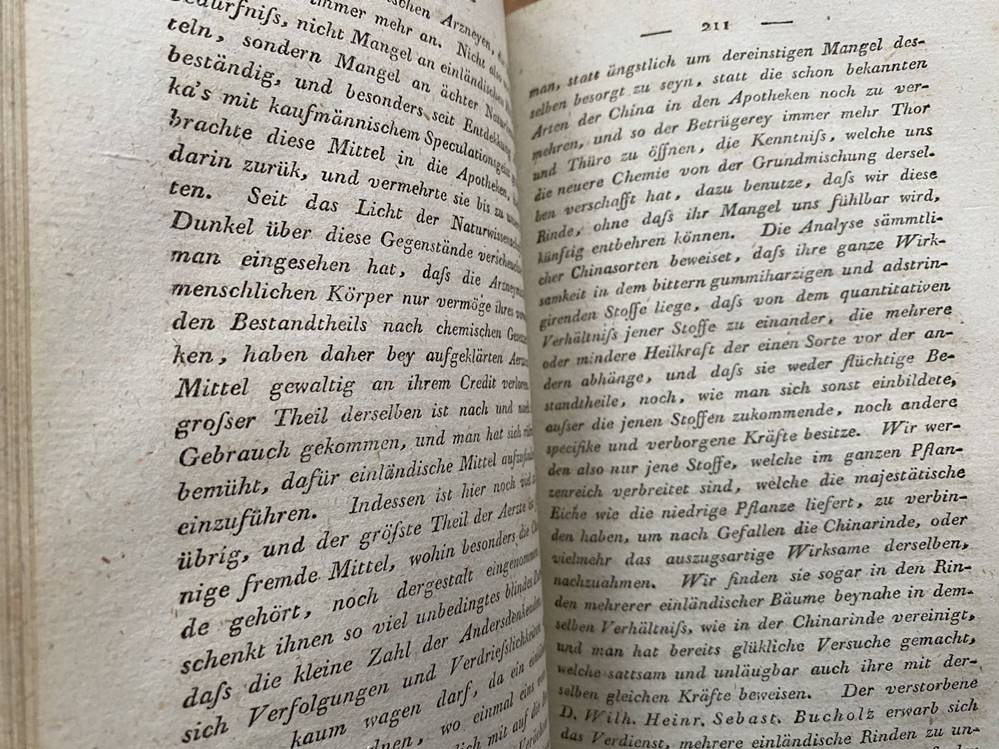 immer mehr an. Nicht also
Bedürfniſs, nicht Mangel an einländischen
teln, sondern Mangel an ächter
beständig, und besonders seit Entdekkung
ka's mit kaufmännischem Speculationsgeist
brachte diese Mittel in die Apotheken,
darin zurück, und vermehrte sie bis zu
ten. Seit das Licht der
Dunkel über diese Gegenstände
man eingesehen hat, daſs die
menschlichen Körper nur vermöge ihres
den Bestandtheils nach chemischen
ken, haben daher bey aufgeklärten
Mittel gewaltig an ihrem Credit
groſser Theil derselben ist nach und
Gebrauch gekommen, und man hat sich
bemüht, dafür einländische Mittel
einzuführen. Indessen ist hier noch viel
übrig, und der gröſste Theil der Aerzte ist
nige fremde Mittel, wohin besonders die
de gehört, noch dergestalt eingenommen
schenkt ihnen so viel unbedingtes blindes
daſs die kleine Zahl der Andersdenkenden
sich Verfolgungen und Verdrieſslichkeiten
kaum wagen darf, da ein
wo einmal eins
mit auf die
— 211 —
man, statt ängstlich um dereinstigen Mangel des-
selben besorgt zu seyn, statt die schon bekannten
Arten der China in den Apotheken noch zu ver-
mehren, und so der Betrügerey immer mehr Thor
und Thüre zu öffnen, die Kenntniſs, welche uns
die neuere Chemie von der Grundmischung dersel-
ben verschafft hat, dazu benutze, daſs wir diese
Rinde, ohne daſs ihr Mangel uns fühlbar wird,
künftig entbehren können. Die Analyse sämmtli-
cher Chinasorten beweiset, daſs ihre ganze Wirk-
samkeit in dem bittern gummiharzigen und adstrin-
girenden Stoffe liege, daſs von dem quantitativen
Verhältniſs jener Stoffe zu einander, die mehrere
oder mindere Heilkraft der einen Sorte vor der an-
dern abhänge, und daſs sie weder flüchtige Be-
standtheile, noch, wie man sich sonst einbildete,
auſser die jenen Stoffen zukommende, noch andere
specifike und verborgene Kräfte besitze. Wir wer-
den also nur jene Stoffe, welche im ganzen Pflan-
zenreich verbreitet sind, welche die majestätische
Eiche wie die niedrige Pflanze liefert, zu verbin-
den haben, um nach Gefallen die Chinarinde, oder
vielmehr das auszugsartige Wirksame derselben,
nachzuahmen. Wir finden sie sogar in den Rin-
den mehrerer einländischer Bäume beynahe in dem-
selben Verhältniſs, wie in der Chinarinde vereinigt,
und man hat bereits glükliche Versuche gemacht,
welche sattsam und unläugbar auch ihre mit der-
selben gleichen Kräfte beweisen. Der verstorbene
D. Wilh. Heinr. Sebast. Bucholz erwarb sich
das Verdienst, mehrere einländische Rinden zu un-